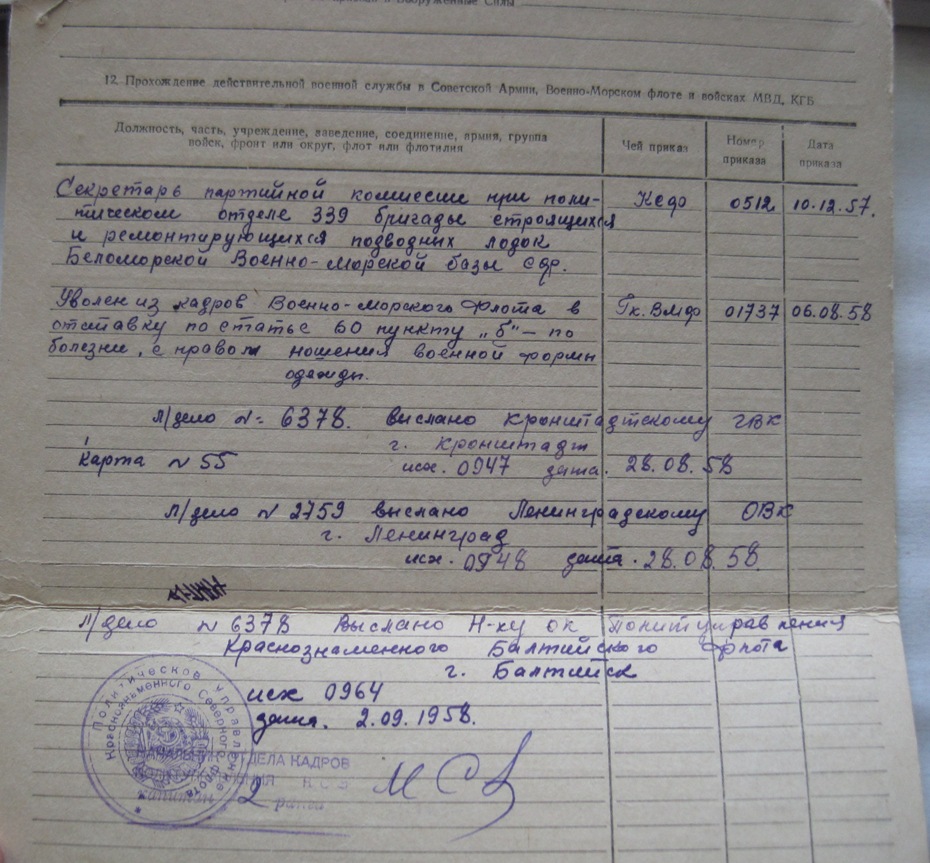 в Вооруженные Силы
12. Прохождение действительной военной службы в Советской Армии, Военно-Морском флоте и войсках МВД, КГБ
Должность, часть, учреждение, заведение, соединение, армия, группа войск, фронт или округ, флот или флотилия
Чей приказ
Номер приказа
Дата приказа
Секретарь партийной комиссии при поли- Ксф 0512 10.12.57.
тическом отделе 339 бригады строящихся
и ремонтирующихся подводных лодок
Беломорской Военно-Морской базы СФ.
Уволен из кадров Военно-Морского Флота в Гк. ВМФ 01737 06.08.58
отставку по статье 60 пункту „б“ – по
болезни, с правом ношения военной формы
одежды.
Л/дело №: 6378. выслано Кронштадтскому ГВК
г. Кронштадт
Карта №55 исх. 0947 дата. 28.08.58
Л/дело № 2759 выслано Ленинградскому ОВК
г. Ленинград
исх. 0948 дата. 28.08.58.
Л/дело № 6378 выслано Н-ку ОК Политуправления
Краснознаменного Балтийского Флота
г. Балтийск
исх 0964
дата. 2.09.1958.
Политическое Управление
Краснознаменного Северного флота
НАЧАЛЬНИК ОТДЕЛА КАДРОВ
ПОЛИТУПРАВЛЕНИЯ
капитан 2 ранга